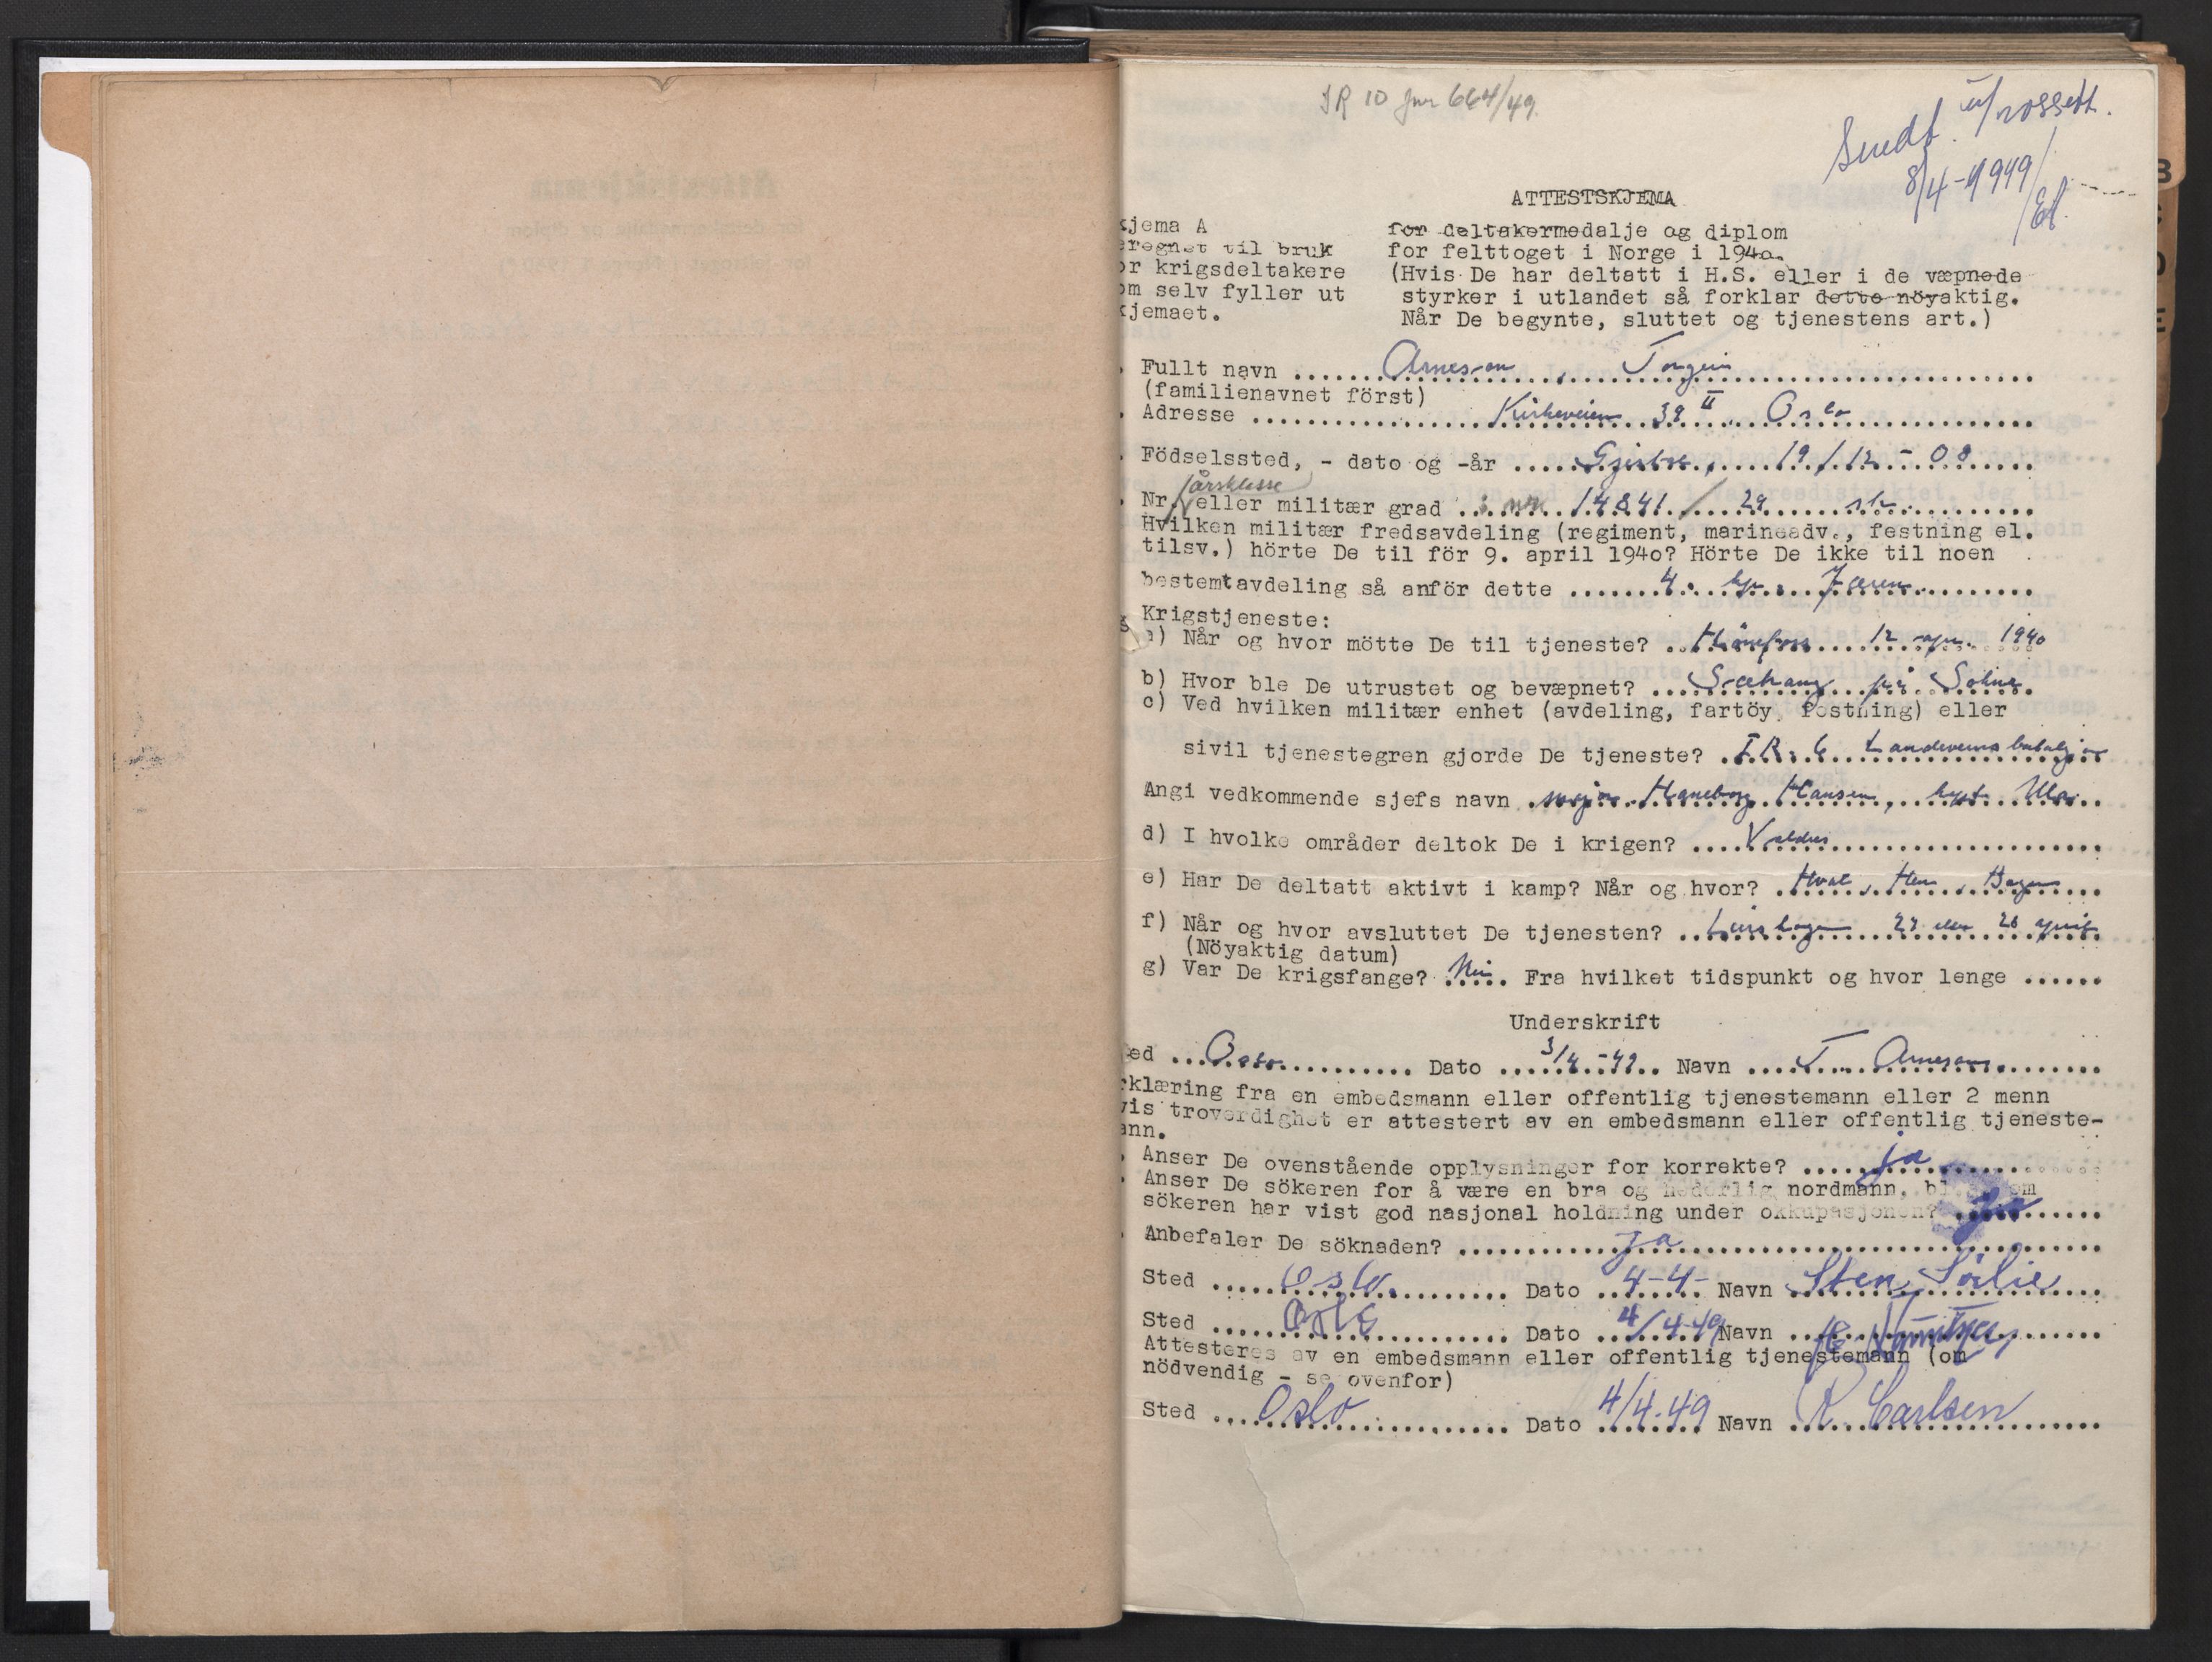 JR 10 jnr 664/49.
Sendt u/rossett.
8/4-1949/
ATTESTSKJEMA
kjema A
for deltakermedalje og diplom
eregnet til bruk
for felttoget i Norge i 1940.
or krigsdeltakere
(Hvis De har deltatt i H.S. eller i de væpnede
om selv fyller ut
styrker i utlandet så forklar dette nöyaktig.
kjemaet.
Når De begynte, sluttet og tjenestens art.)
Fullt navn ..... Arneson, Torgeir
(familienavnet först)
Adresse ..... Kirkeveien 39 II Oslo
Födselssted, - dato og -år ..... 19/12-08
årsklasse
Nr. eller militær grad ..... nr. 14841/29
Hvilken militær fredsavdeling (regiment, marineadv., festning el.
tilsv.) hörte De til för 9. april 1940? Hörte De ikke til noen
bestemtavdeling så anför dette ..... 4. kp. Jæren
Krigstjeneste:
a) Når og hvor mötte De til tjeneste? ..... Hönefoss 12 apr. 1940
b) Hvor ble De utrustet og bevæpnet? ..... på
c) Ved hvilken militær enhet (avdeling, fartöy, festning) eller
sivil tjenestegren gjorde De tjeneste? .. I.R. 6 Landeverns bataljon
Angi vedkommende sjefs navn . major Haneborg Hansen, kapt.
d) I hvolke områder deltok De i krigen? .... Valdres
e) Har De deltatt aktivt i kamp? Når og hvor? . Hval, Hen,
f) Når og hvor avsluttet De tjenesten? .. 27 eller 26 april
(Nöyaktig datum)
g) Var De krigsfange? Nei. Fra hvilket tidspunkt og hvor lenge ......
Underskrift
ed ... Oslo ..... Dato 3/4-49 .. Navn .... T. Arneson
rklæring fra en embedsmann eller offentlig tjenestemann eller 2 menn
vis troverdighet er attestert av en embedsmann eller offentlig tjeneste-
ann.
Anser De ovenstående opplysninger for korrekte? ..... ja
Anser De sökeren for å være en bra og hederlig nordmann, bl. om
sökeren har vist god nasjonal holdning under okkupasjonen? ja
Anbefaler De söknaden? ..... ja
Sted ..... Oslo. ..... Dato 4-4- Navn Sten Sörlie
Sted ..... Oslo ..... Dato 4/4-49 Navn
Attesteres av en embedsmann eller offentlig tjenestemann (om
nödvendig - se ovenfor)
Sted .... Oslo ..... Dato 4/4.49 Navn R. Carlsen